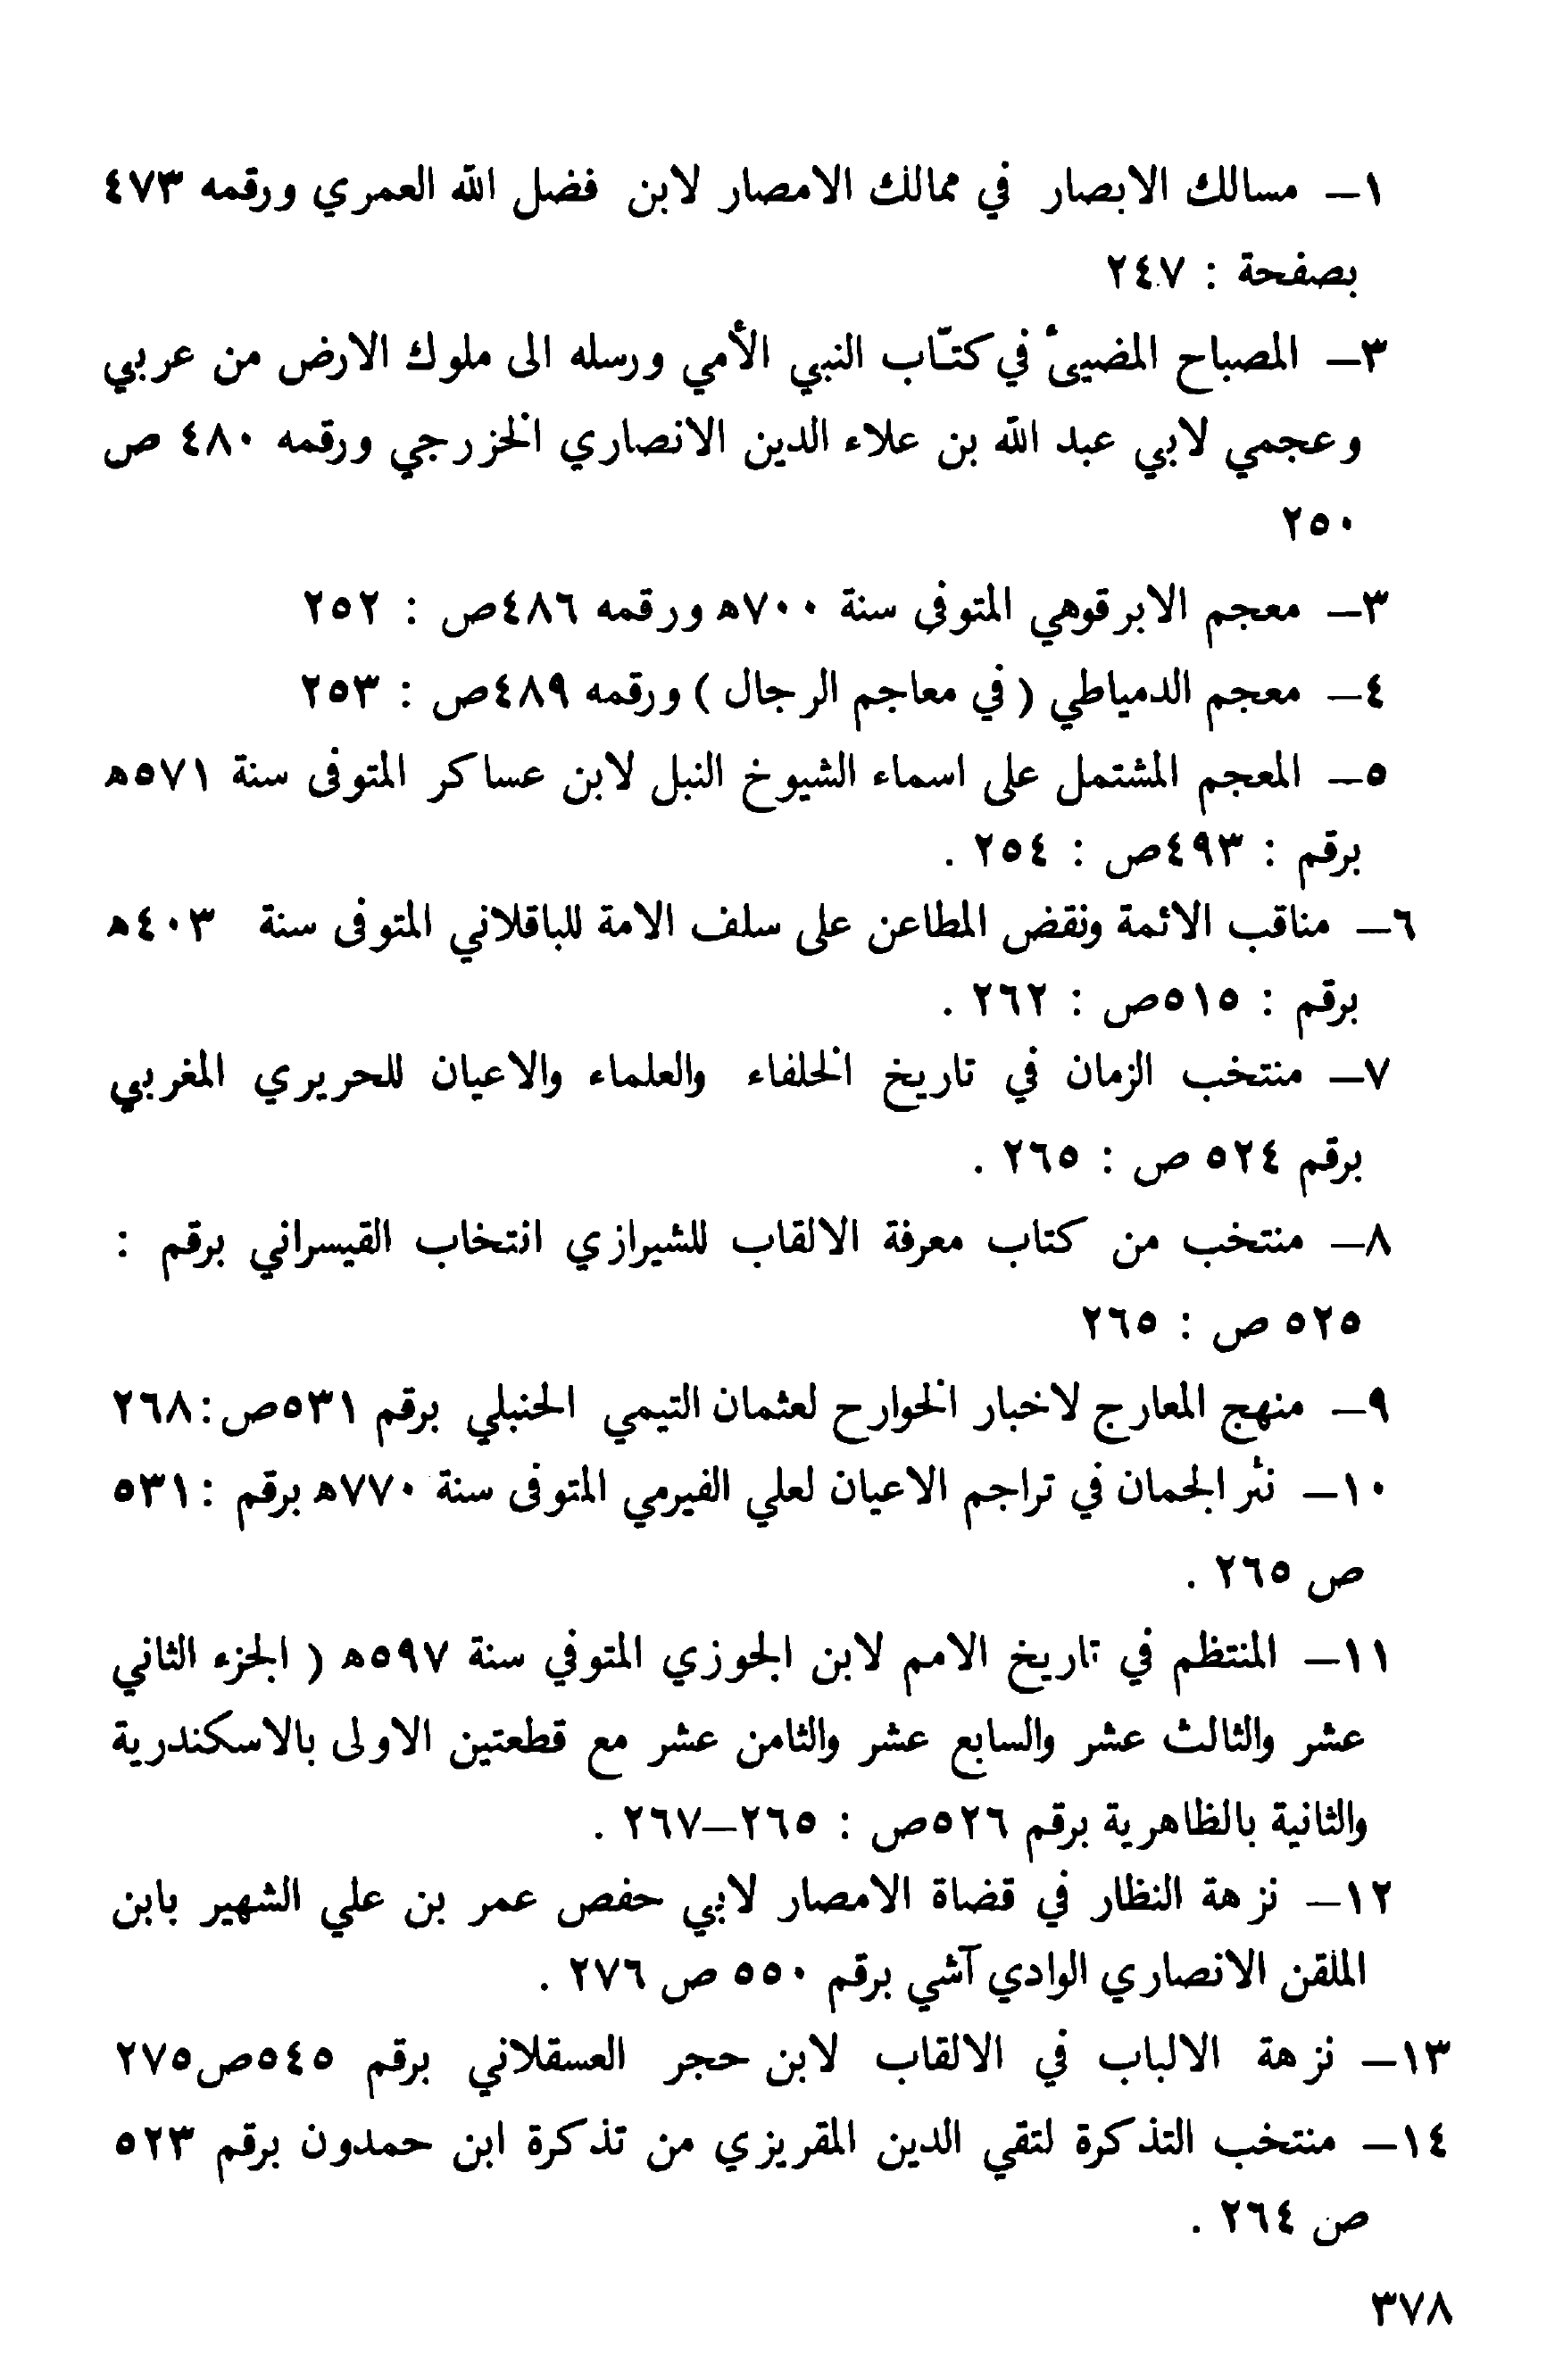 ١ـ مسالك الابصار في ممالك الامصار لابن فضل الله العمري ورقمه ٤٧٣
بصفحة : ٢٤٧
٣ـ المصباح المضيىء في كتّاب النبي الأمي ورسله الى ملوك الارض من عربي
وعجمي لابي عبد الله بن علاء الدين الانصاري الخزرجي ورقمه ٤٨٠ ص
٢٥٠
٣ـ معجم الابرقوهي المتوفى سنة ٧٠٠ه ورقمه ٤٨٦ص : ٢٥٢
٤ـ معجم الدمياطي ( في معاجم الرجال ) ورقمه ٤٨٩ص : ٢٥٣
٥ـ المعجم المشتمل على اسماء الشيوخ النبل لابن عساكر المتوفى سنة ٥٧١ه
برقم : ٤٩٣ص : ٢٥٤ .
٦ـ مناقب الائمة ونقض المطاعن على سلف الامة للباقلاني المتوفى سنة ٤٠٣ه
برقم : ٥١٥ص : ٢٦٢ .
٧ـ منتخب الزمان في تاريخ الخلفاء والعلماء والاعيان للحريري المغربي
برقم ٥٢٤ ص : ٢٦٥ .
٨ـ منتخب من كتاب معرفة الالقاب للشيرازي انتخاب القيسراني برقم :
٥٢٥ ص : ٢٦٥
٩ـ منهج المعارج لاخبار الخوارح لعثمان التيمي الحنبلي برقم ٥٣١ص : ٢٦٨
١٠ـ نثر الجمان في تراجم الاعيان لعلي الفيرمي المتوفى سنة ٧٧٠ه برقم : ٥٣١
ص ٢٦٥ .
١١ـ المنتظم في تاريخ الامم لابن الجوزي المتوفي سنة ٥٩٧ه ( الجزء الثاني
عشر والثالث عشر والسابع عشر والثامن عشر مع قطعتين الاولى بالاسكندرية
والثانية بالظاهرية برقم ٥٢٦ص : ٢٦٥ـ٢٦٧ .
١٢ـ نزهة النظار في قضاة الامصار لابي حفص عمر بن علي الشهير بابن
الملقن الانصاري الوادي آشي برقم ٥٥٠ ص ٢٧٦ .
١٣ـ نزهة الالباب في الالقاب لابن حجر العسقلاني برقم ٥٤٥ص٢٧٥
١٤ـ منتخب التذكرة لتقي الدين المقريزي من تذكرة ابن حمدون برقم ٥٢٣
ص ٢٦٤ .
٣٧٨